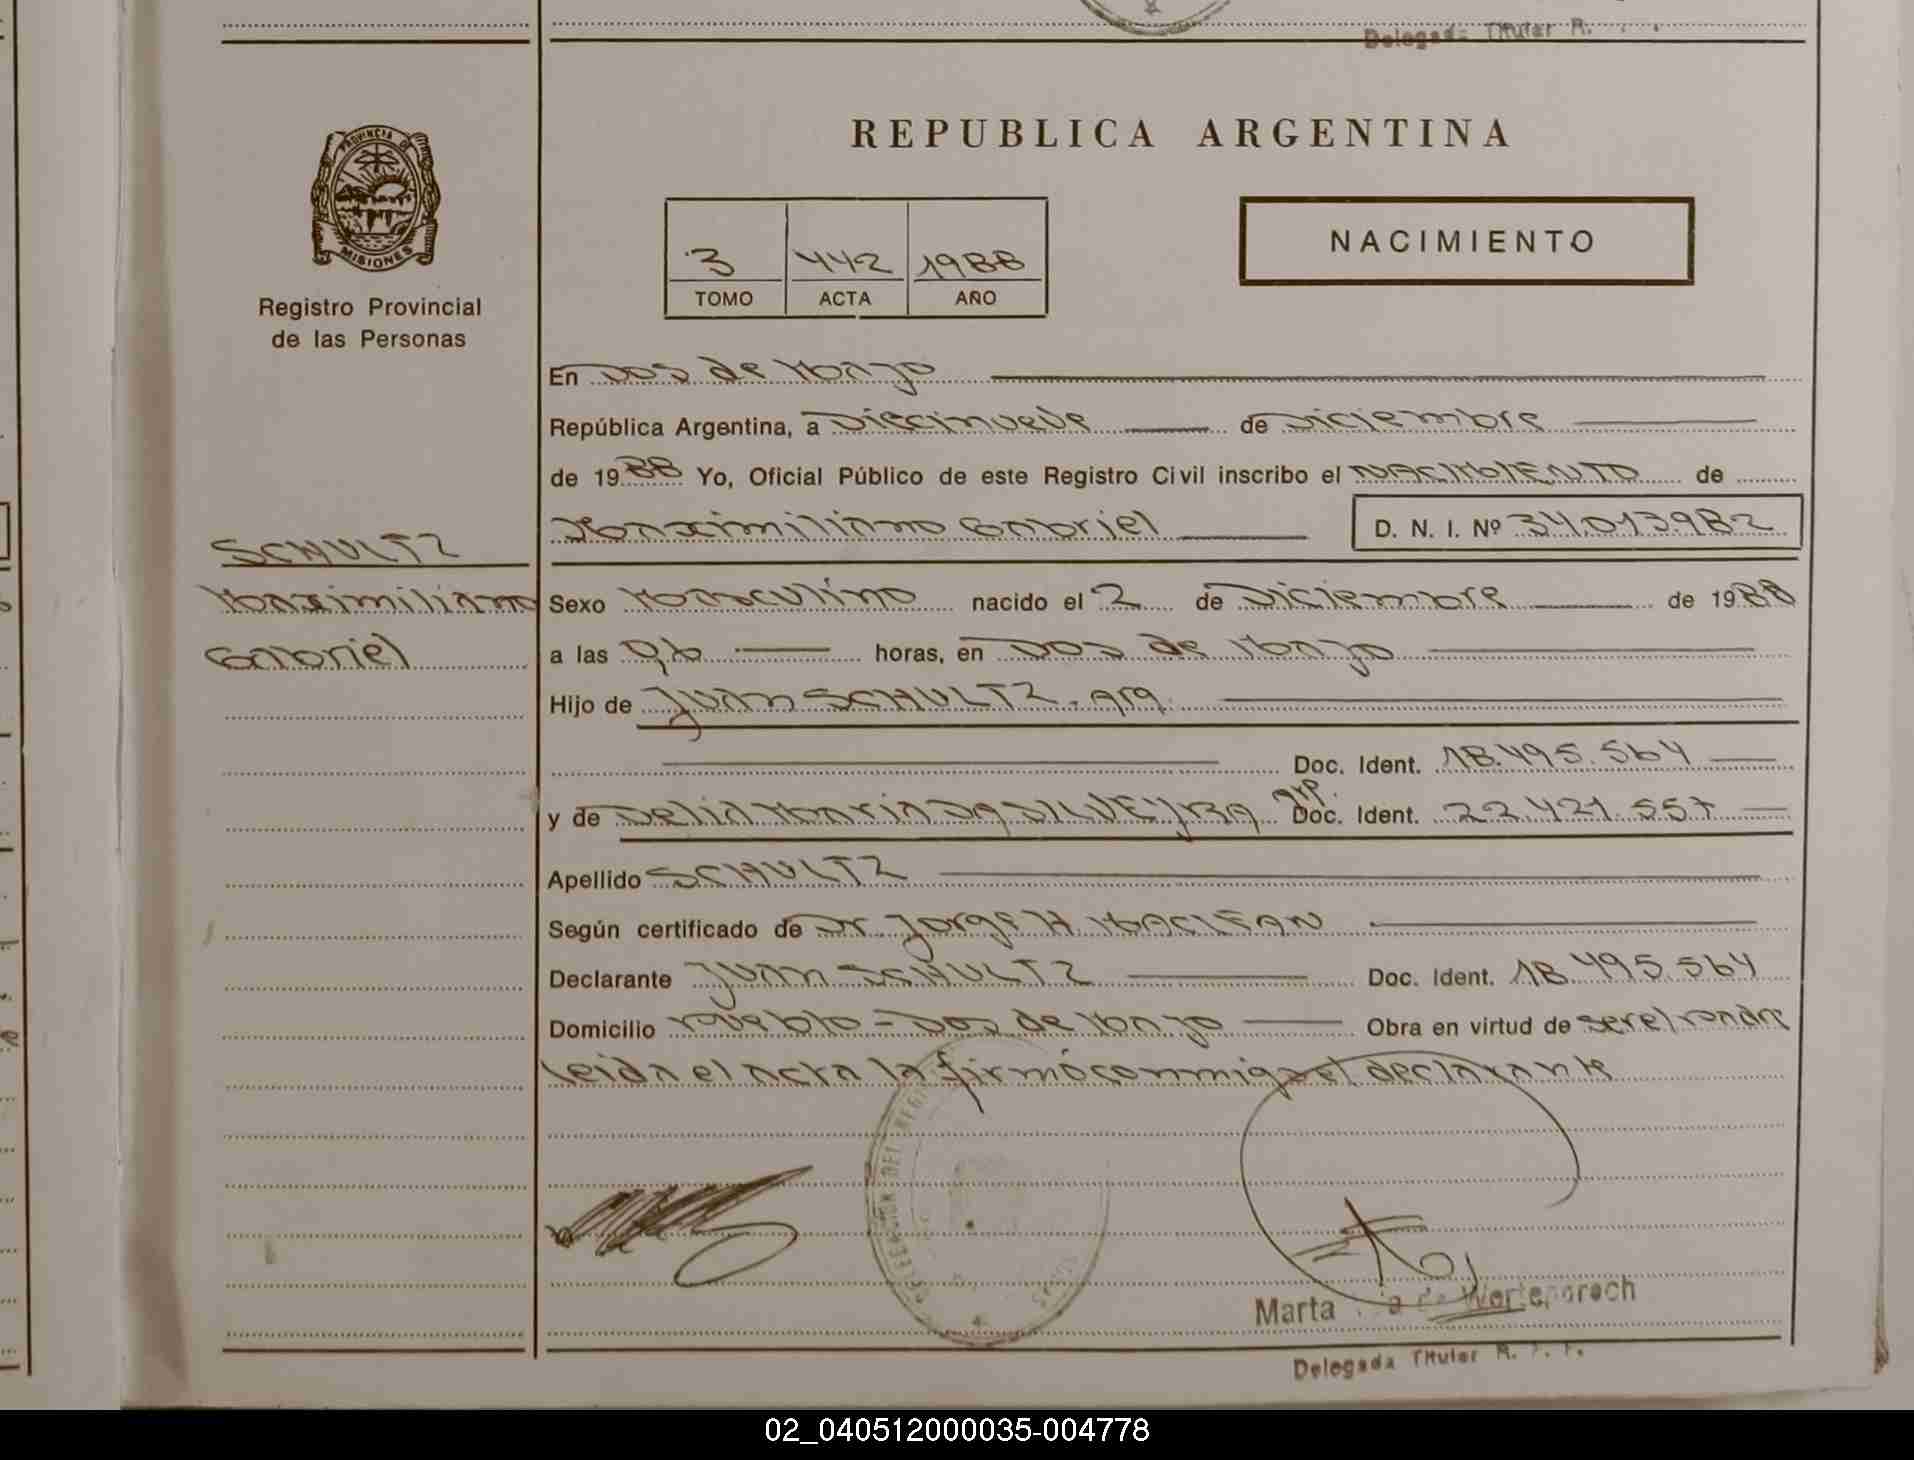 Delegada Titular R.
PROVINCIA DE
MISIONES
Registro Provincial
de las Personas
REPUBLICA ARGENTINA
3 442 1988
TOMO ACTA AÑO
NACIMIENTO
En Dos de Mayo
República Argentina, a Diecinueve de Diciembre
de 1988 Yo, Oficial Público de este Registro Civil inscribo el NACIMIENTO de
Maximiliano Gabriel D. N. I. Nº 34.013.982
SCHULTZ
Maximiliano
Gabriel
Sexo Masculino nacido el 2 de Diciembre de 1988
a las horas, en Dos de Mayo
Hijo de Juan SCHULTZ. arg.
Doc. Ident. 18.495.564
y de Delia Maria Da SILVEYRA arg. Doc. Ident. 22.421.557
Apellido SCHULTZ
Según certificado de Dr. Jorge H MACLEAN
Declarante Juan SCHULTZ Doc. Ident. 18.495.564
Domicilio Pueblo - Dos de Mayo Obra en virtud de ser el
Leida el acta la firmó conmigo el declarante
DELEGACIÓN DEL
Marta de
Delegada Titular R. P. P.
02_040512000035-004778